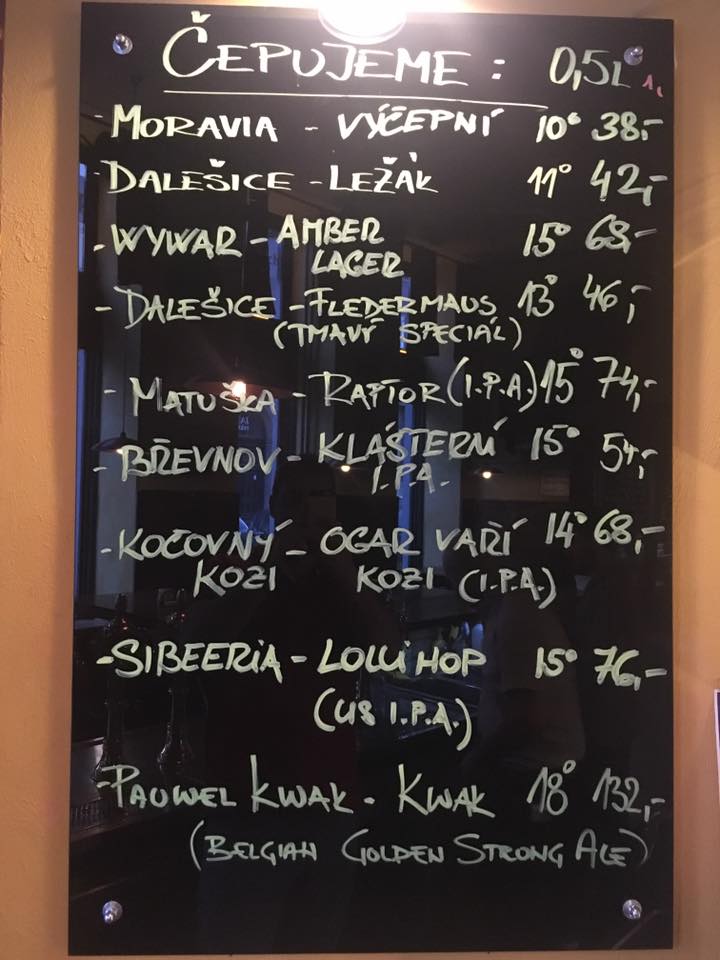 ČEPUJEME: 0,5L
- MORAVIA - VÝČEPNÍ 10° 38.-
- DALEŠICE - LEŽÁK 11° 42,-
- WYWAR - AMBER 15° 68,-
LAGER
- DALEŠICE - FLEDERMAUS 13° 46,-
(TMAVÝ SPECIÁL)
- MATUŠKA - RAPTOR (I.P.A) 15° 74,-
- BŘEVNOV - KLÁŠTERNÍ 15° 54,-
I.P.A.
- KOČOVNÝ - OGAR VAŘÍ 14° 68,-
KOZI KOZI (I.P.A)
- SIBEERIA - LOLLIHOP 15° 76,-
(US I.P.A.)
- PAUWEL KWAK - KWAK 18° 132,-
(BELGIAN GOLDEN STRONG ALE)